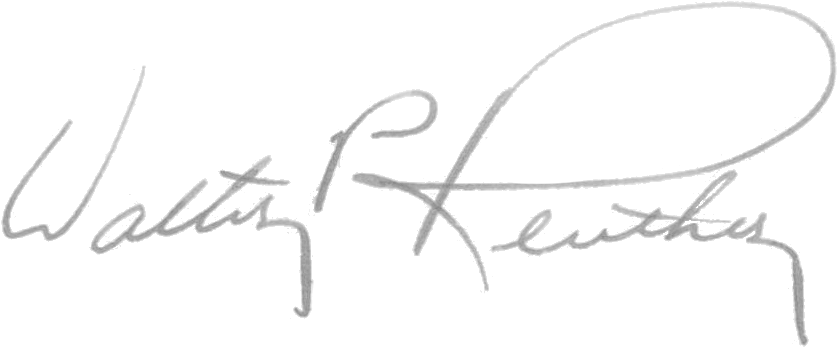 Walter P Reuther